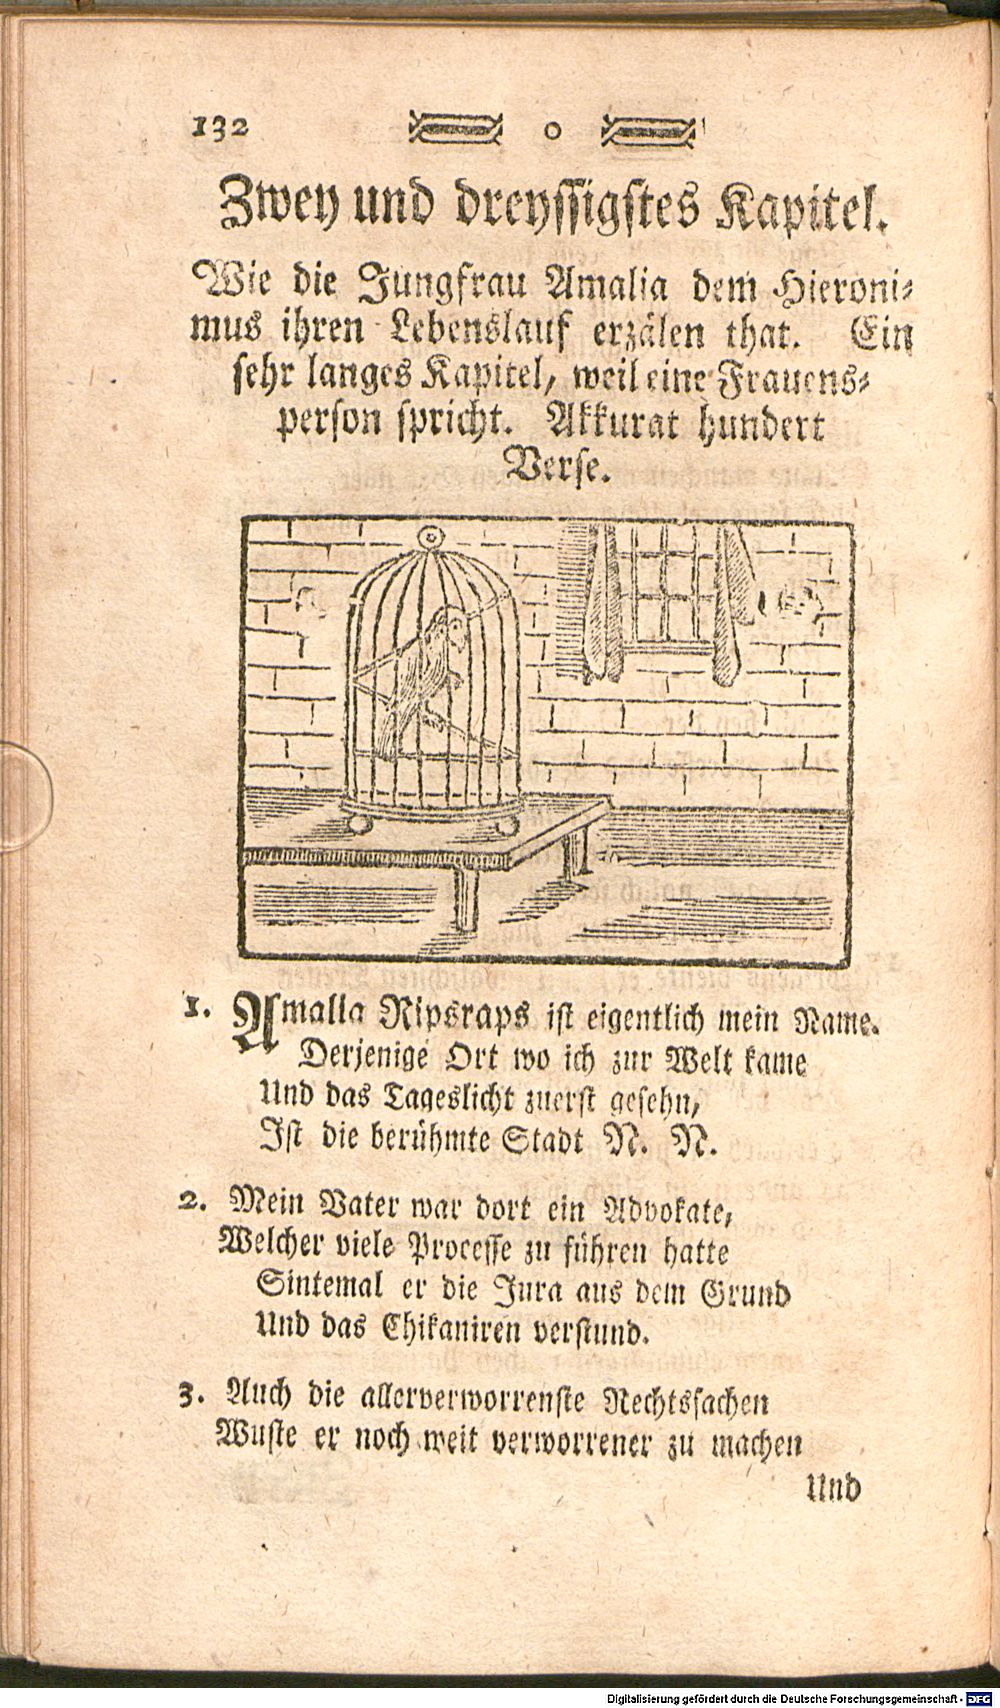 132 o
Zwey und dreyssigstes Kapitel.
Wie die Jungfrau Amalia dem Hieroni-
mus ihren Lebenslauf erzälen that. Ein
sehr langes Kapitel, weil eine Frauens-
person spricht. Akkurat hundert
Verse.
1. Amalia Ripsraps ist eigentlich mein Name.
Derjenige Ort wo ich zur Welt kame
Und das Tageslicht zuerst gesehn,
Ist die berühmte Stadt N. N.
2. Mein Vater war dort ein Advokate,
Welcher viele Processe zu führen hatte
Sintemal er die Jura aus dem Grund
Und das Chikaniren verstund.
3. Auch die allerverworrenste Rechtssachen
Wuste er noch weit verworrener zu machen
Und
Digitalisierung gefördert durch die Deutsche Forschungsgemeinschaft - DFG